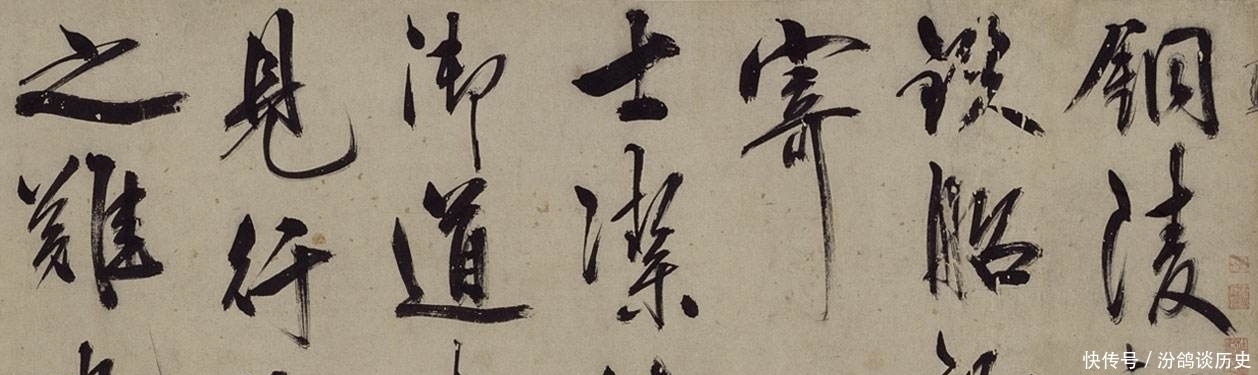 銅陵
鐵船
寄
士潔
御道
見行
之難
快传号 / 汾鸽谈历史